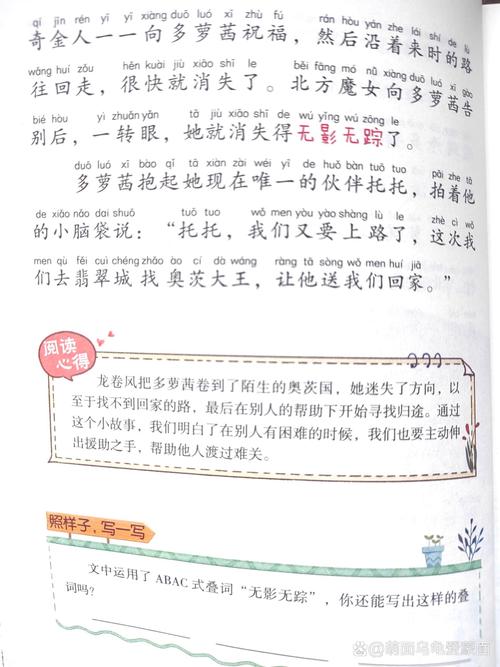 qí jīn rén yī yī xiàng duō luó xī zhù fú rán hòu yán zhe lái shí de lù
奇金人一一向多萝茜祝福，然后沿着来时的路
wǎng huí zǒu hěn kuài jiù xiāo shī le běi fāng mó nǚ xiàng duō luó xī gào
往回走，很快就消失了。北方魔女向多萝茜告
bié hòu yì zhuǎn yǎn tā jiù xiāo shī de wú yǐng wú zōng le
别后，一转眼，她就消失得无影无踪了。
duō luó xī bào qǐ tā xiàn zài wéi yī de huǒ bàn tuō tuo pāi zhe tā
多萝茜抱起她现在唯一的伙伴托托，拍着他
de xiǎo nǎo dai shuō tuō tuo wǒ men yòu yào shàng lù le zhè cì wǒ
的小脑袋说：“托托，我们又要上路了，这次我
men qù fěi cuì chéng zhǎo ào cí dà wáng ràng tā sòng wǒ men huí jiā
们去翡翠城找奥茨大王，让他送我们回家。”
阅读
心得
龙卷风把多萝茜卷到了陌生的奥茨国，她迷失了方向，以
至于找不到回家的路，最后在别人的帮助下开始寻找归途。通过
这个小故事，我们明白了在别人有困难的时候，我们也要主动伸
出援助之手，帮助他人渡过难关。
照样子，写一写
文中运用了ABAC式叠词“无影无踪”，你还能写出这样的叠
词吗？